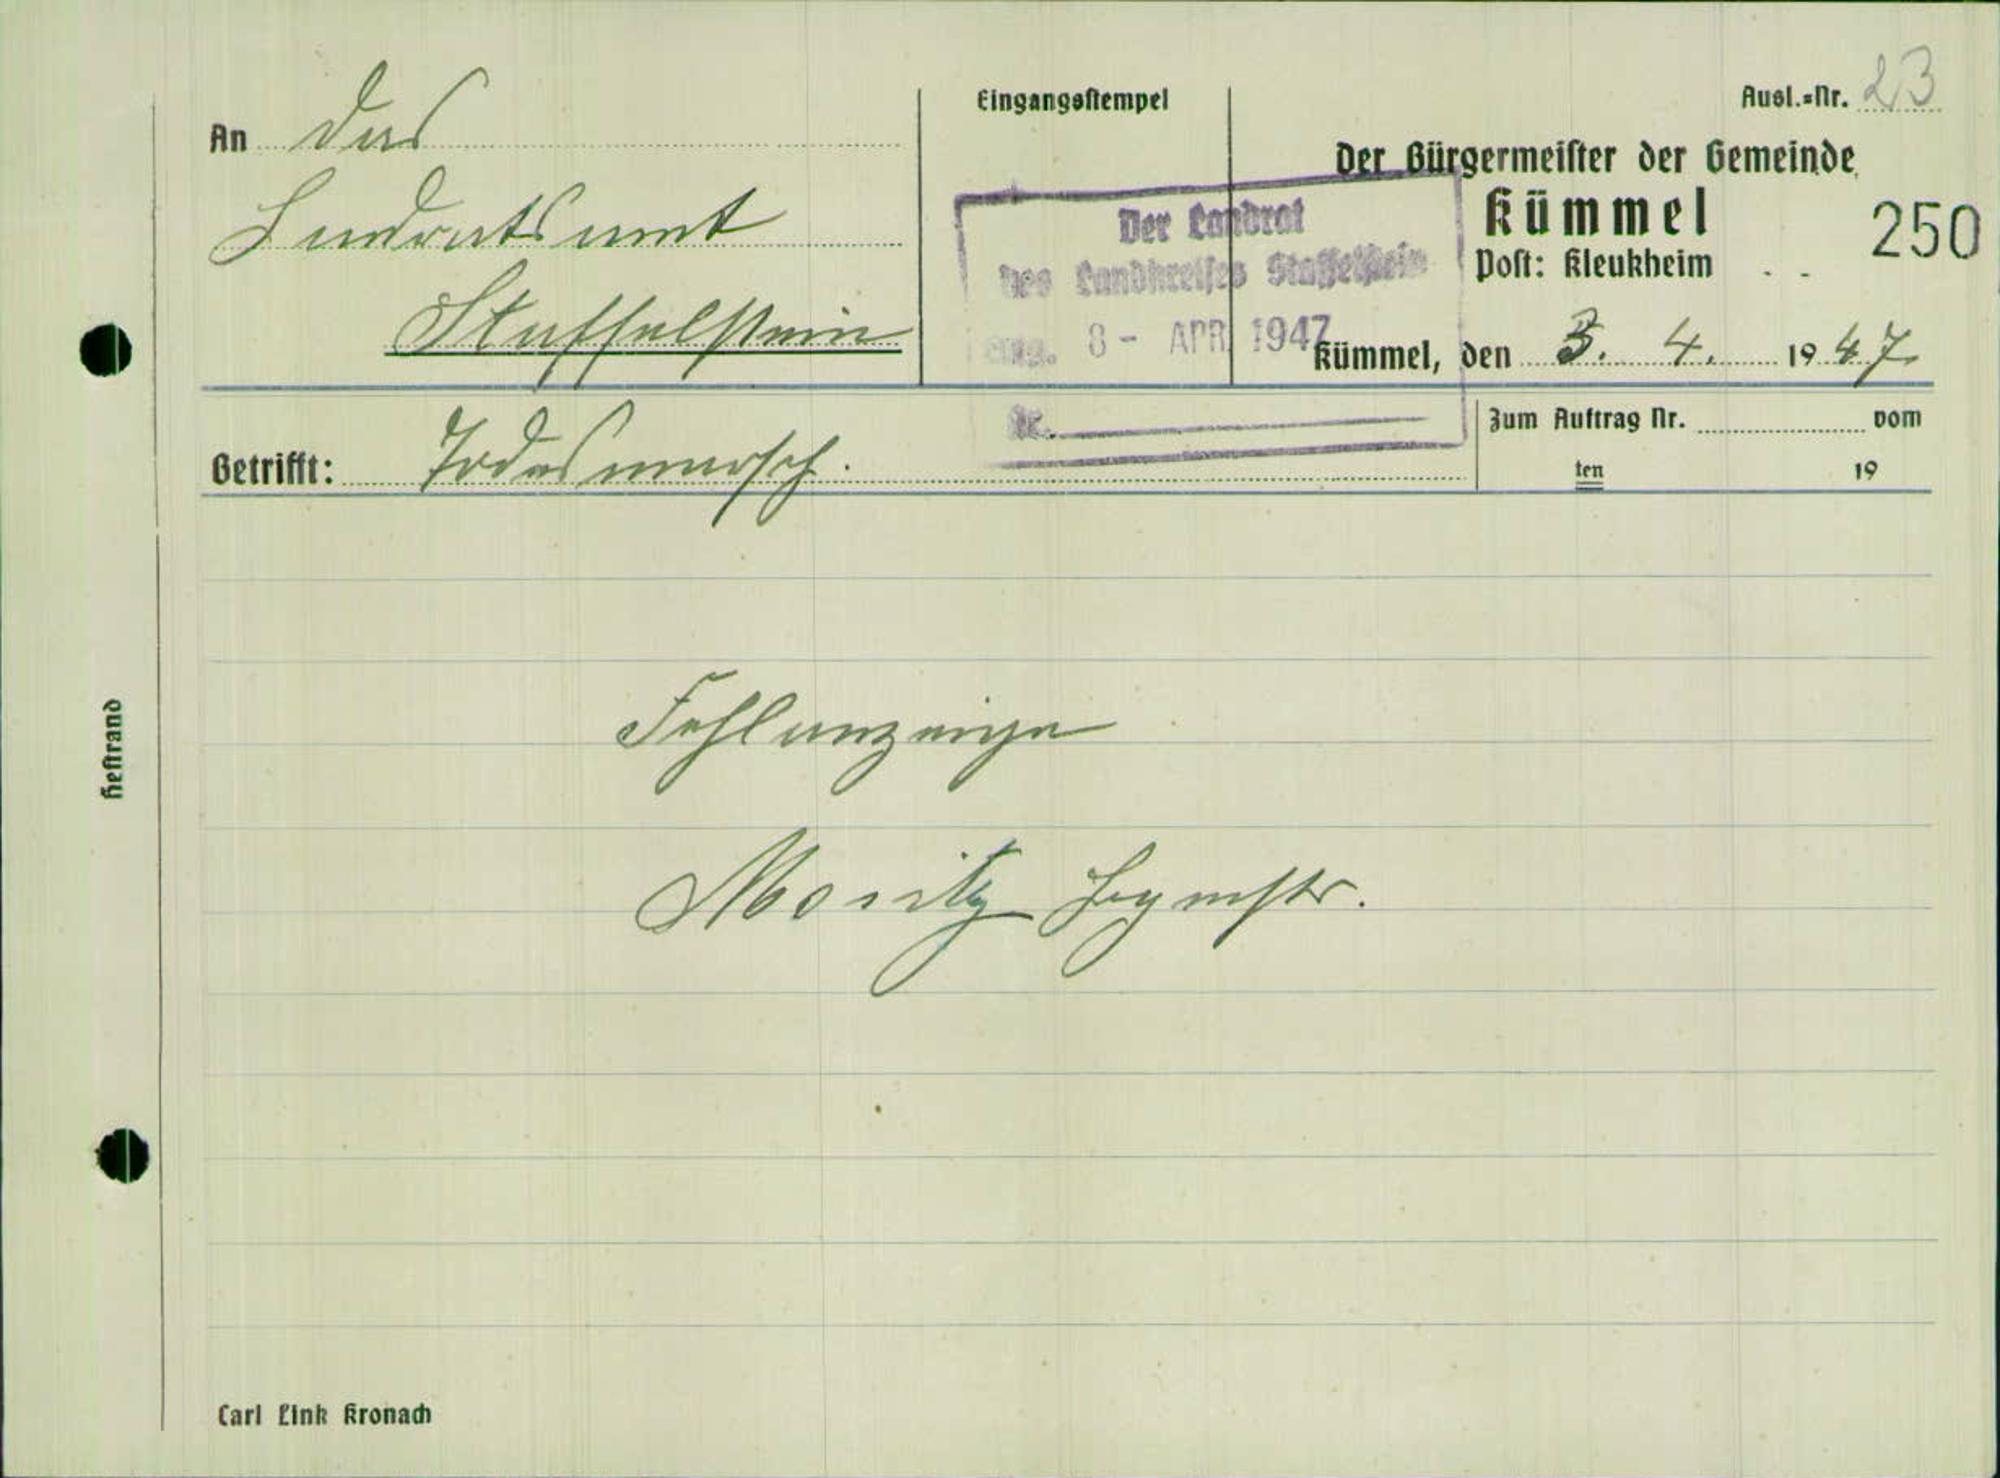 Ausl.-Nr. 23
An das
Landratsamt
Staffelstein
Eingangsstempel
Der Bürgermeister der Gemeinde
Kümmel
Post: Kleukheim
250
Der Landrat
des Landkreises Staffelstein
Eing. 8 - APR. 1947
Nr.
Kümmel, den 3. 4. 1947
Betrifft: Todesmarsch.
Zum Auftrag Nr. vom
ten 19
Fehlanzeige
Moritz Bgmstr.
Heftrand
Carl Link Kronach